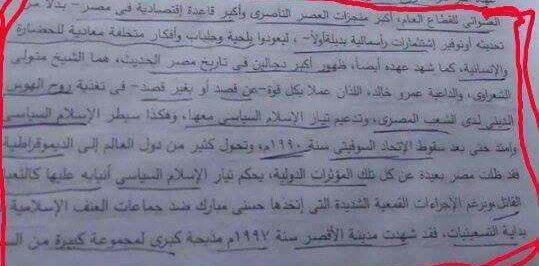 العشوائى للقطاع العام، أكبر منجزات العصر الناصرى وأكبر قاعدة إقتصادية فى مصر - بدلا من
تحديثه أوتوفير إستثمارات رأسمالية بديلةأولاً-، ليعودوا بلحية وجلباب وأفكار متخلفة معادية للحضارة
والإنسانية، كما شهد عهده أيضاً، ظهور أكبر دجالين فى تاريخ مصر الحديث، هما الشيخ متولى
الشعراوى، والداعية عمرو خالد، اللذان عملا بكل قوة-عن قصد أو بغير قصد- فى تغذية روح الهوس
الدينى لدى الشعب المصرى، وتدعيم تيار الإسلام السياسى معها، وهكذا سيطر الإسلام السياسى
وإمتد حتى بعد سقوط الإتحاد السوفيتى سنة ١٩٩٠م، وتحول كثير من دول العالم إلى الديموقراطية
فقد ظلت مصر بعيدة عن كل تلك المؤثرات الدولية، يحكم تيار الإسلام السياسى أنيابه عليها كالثعبان
القاتل، وبرغم الإجراءات القمعية الشديدة التى إتخذها حسنى مبارك ضد جماعات العنف الإسلامية
بداية التسعينيات، فقد شهدت مدينة الأقصر سنة ١٩٩٧م مذبحة كبرى لمجموعة كبيرة من